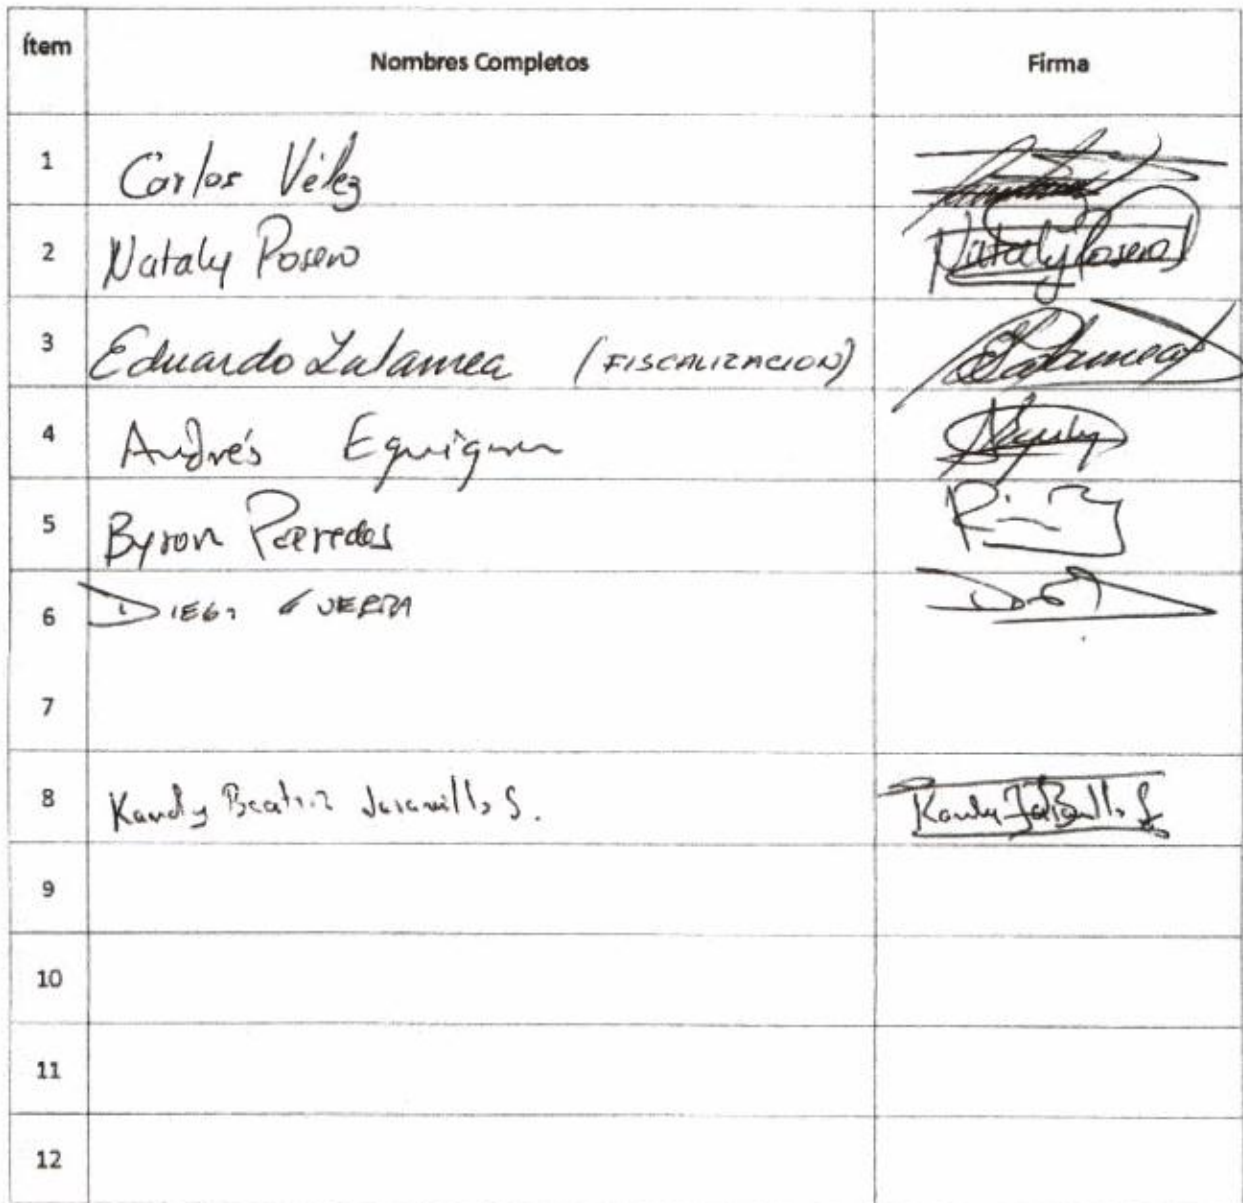 Ítem Nombres Completos Firma
1 Carlos Vélez
2 Nataly Posero Nataly Posero
3 Eduardo Zalamea (FISCALIZACION) Zalamea
4 Andrés Eguiguren
5 Byron Paredes
6 DIEGO GUERRA
7
8 Kandy Beatriz Jaramillo S.
9
10
11
12